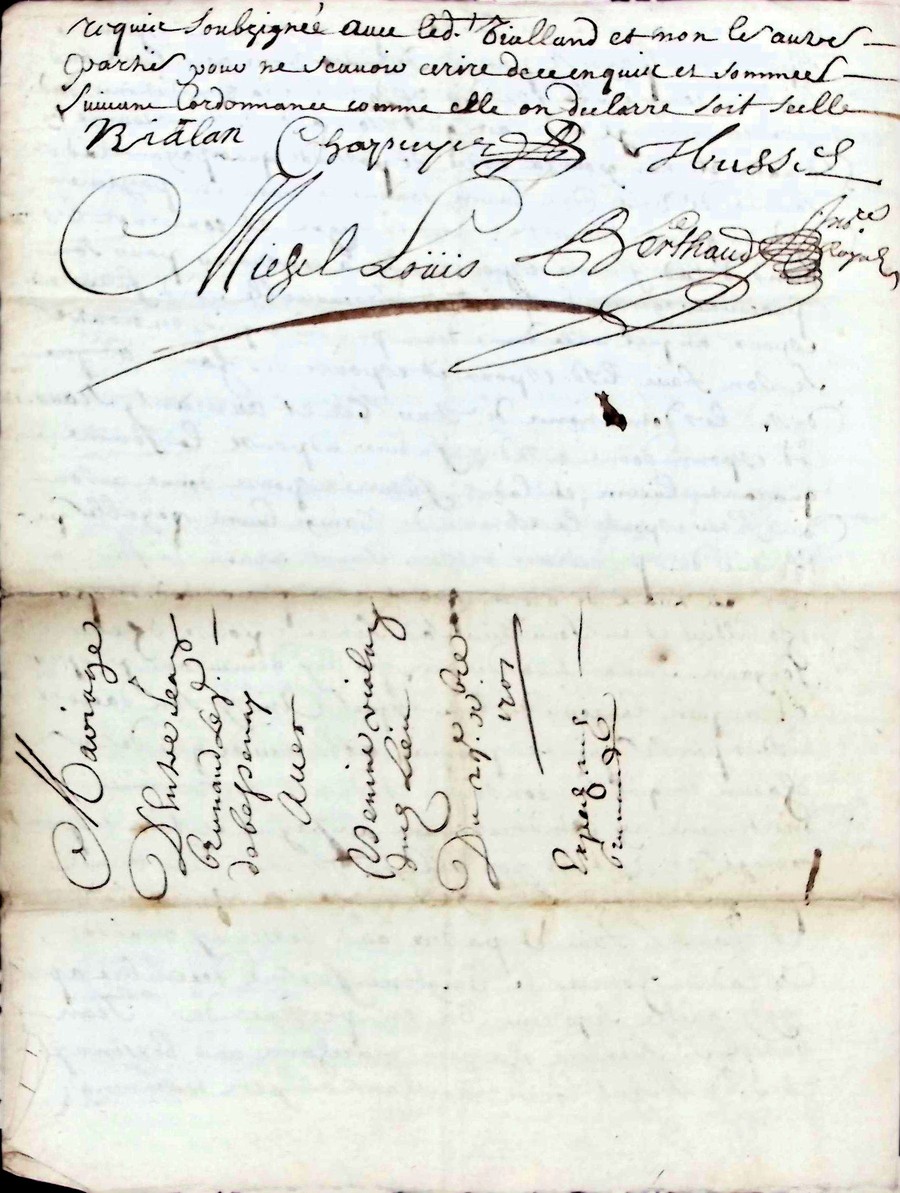 requis soubzignée avec led.t Rialland et non les autres
parties pour ne scavoir ecrire de ce enquis et sommees
suivant l'ordonnance comme elle on declarre soit scelle
Rialan Chapuyer Hussel
Michel Loüis Berthaud No.re Royal
Mariage
D'hute Jean
brunandel
de bessenay
Avec
Benine violay
dud. Lieu
Du 29.e xbre
1701
Exped